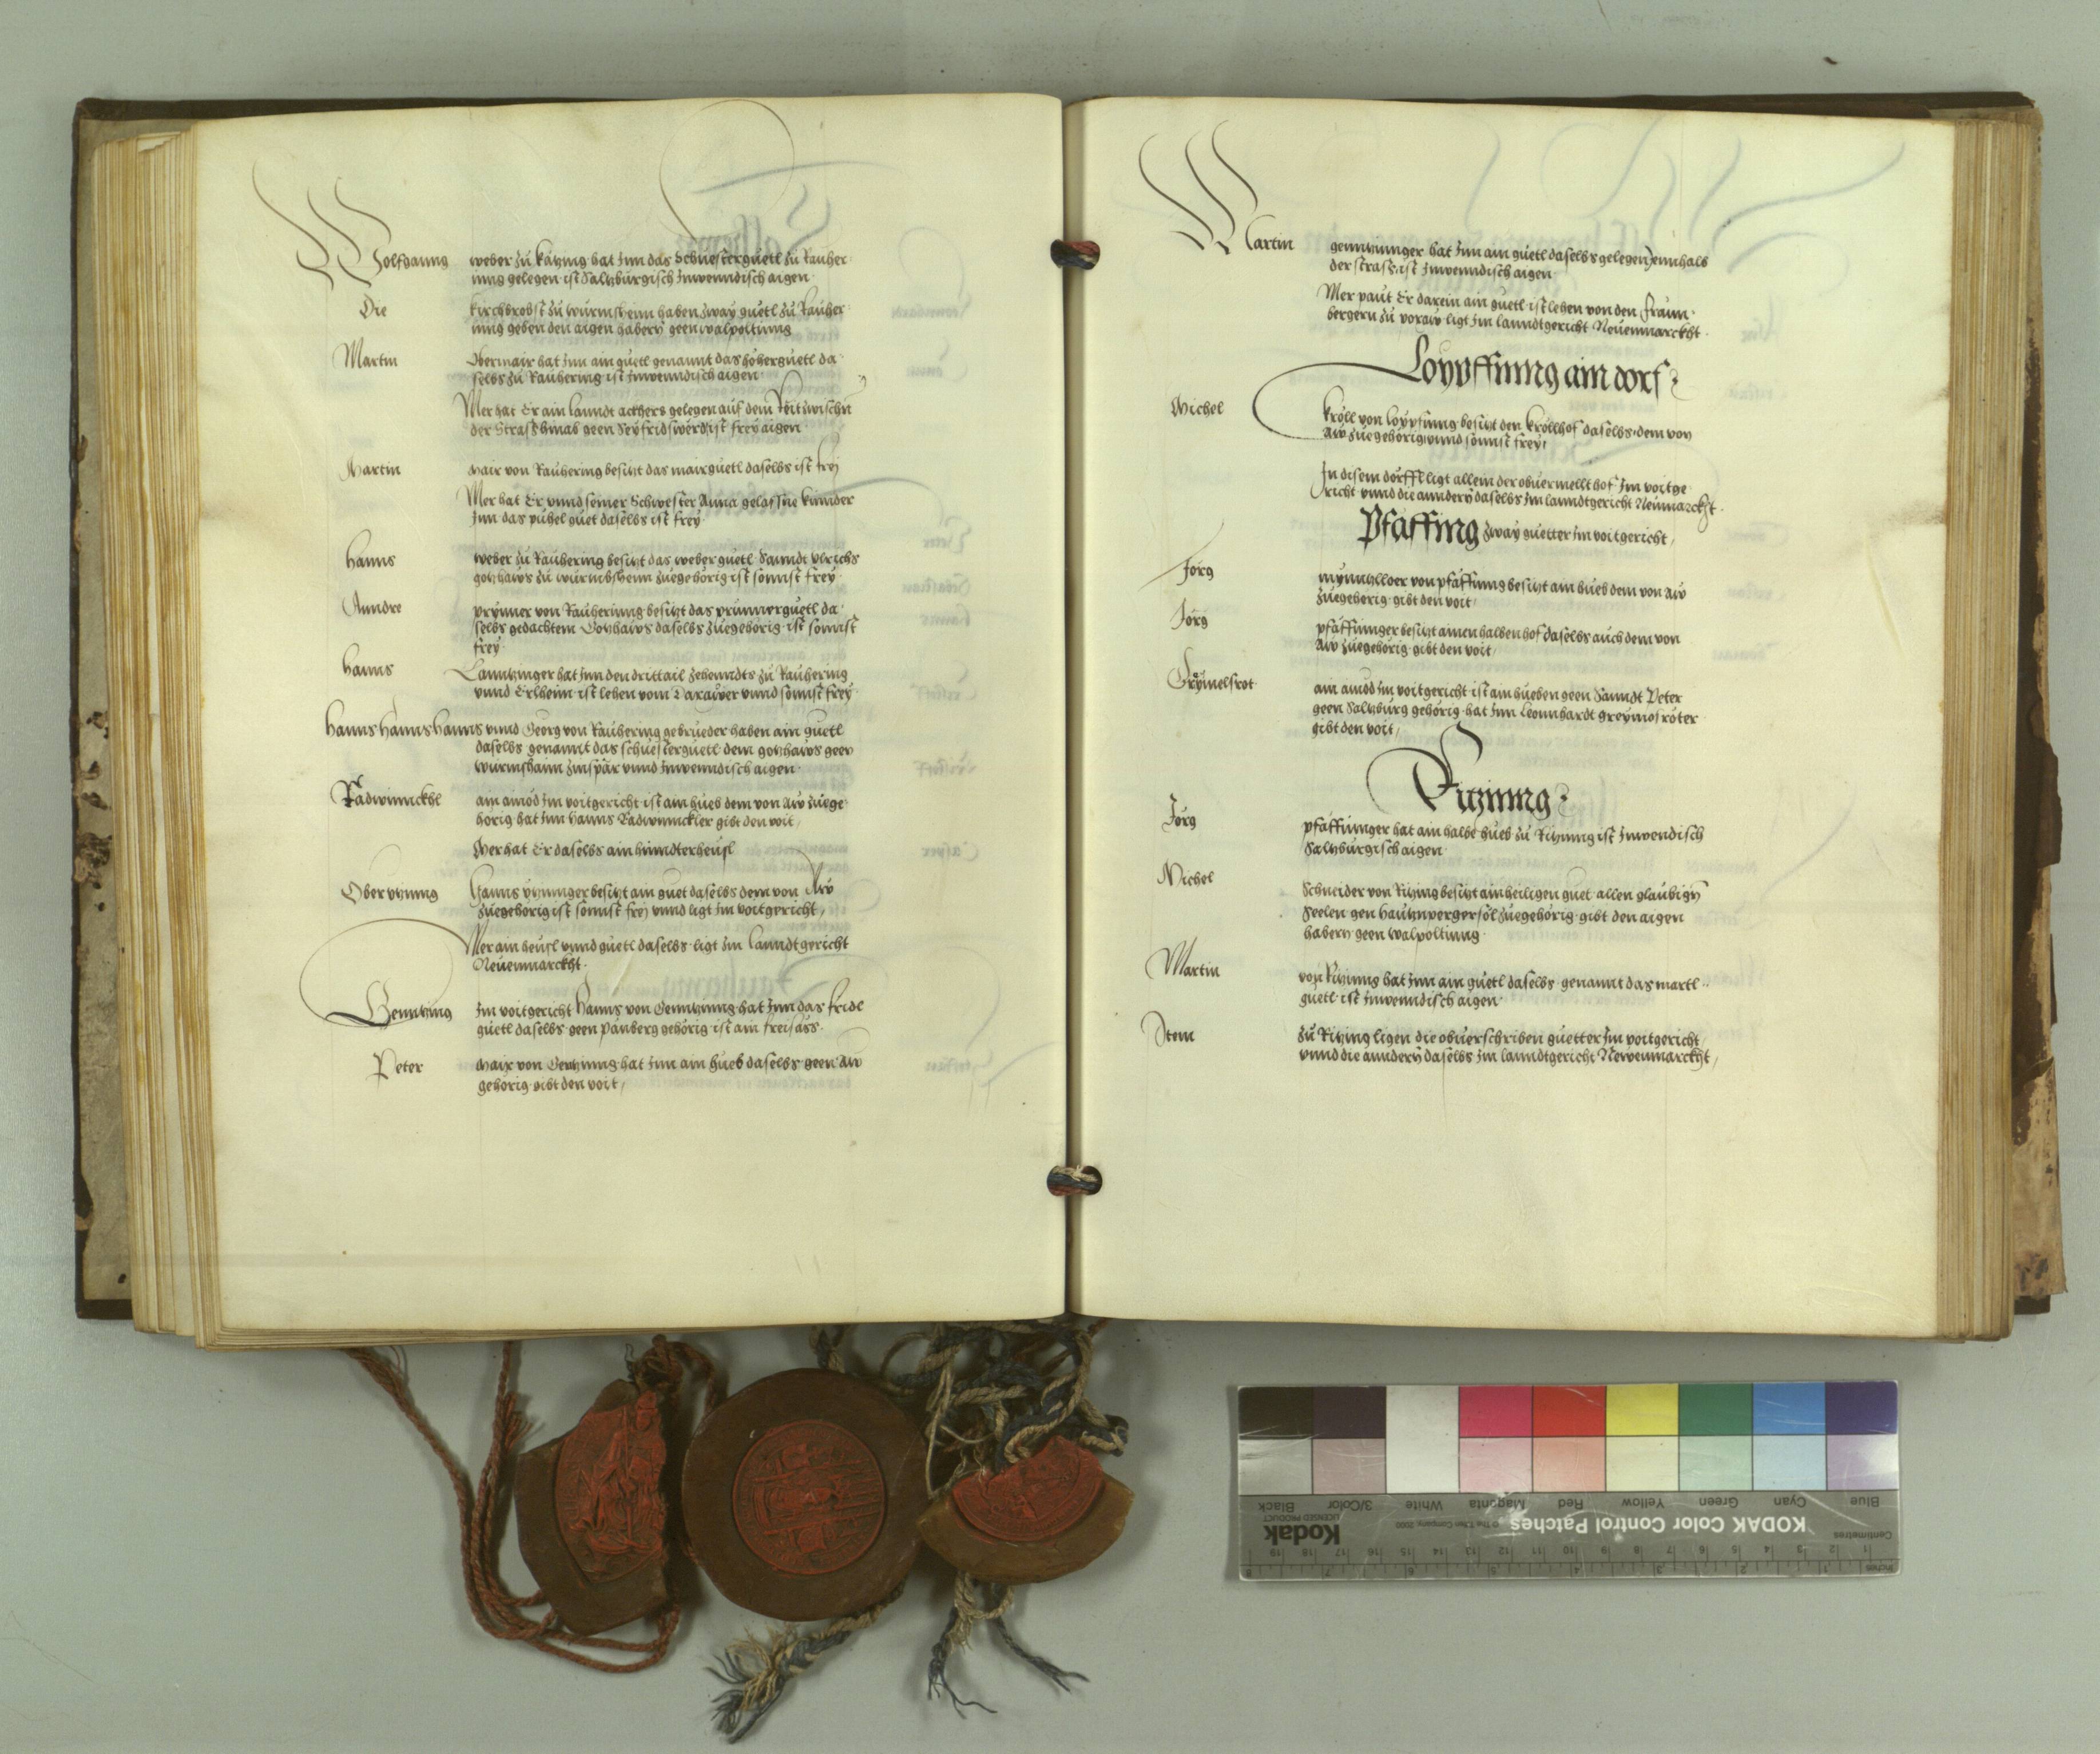 Wolfganng weber zu kätzing hat Inn das Schuesterguetl zu Rauher
inng gelegen ist Saltzburgisch Inwenndisch aigen
Die kirchbrobst zu wurmsheim haben zway guetl zu Rauher
inng geben den aigen habern geen walpoltinng
Martin Obermair hat Inn ain guetl genannt das höherguetl da
selbs zu Rauhering ist Inwenndisch aigen
Mer hat Er ain lanndt ackhers gelegen auf dem zwischn
der Strass hinab geen Seyfridswerd ist frey aigen
Martin mair von Rauhering besitzt das mairguetl daselbs ist frej
Mer hat Er vnnd seiner Schwester Anna gelassne kinnder
Inn das pühel guet daselbs ist frey
hanns weber zu Rauhering besitzt das weber guetl Sanndt vlrichs
gotzhaws zu wurmbsheim zuegehörig ist sonnst frey
Anndre prynner von Rauherinng besitzt das prunnerguetl da
selbs gedachtem Gotzhaws daselbs zuegehörig ist sonnst
frey
hanns Lanntzinger hat Inn den drittail zehenndts zu Rauhering
vnnd Erlheim ist lehen vom Tarawer vnnd sonnst frey
hanns hanns hanns vnnd Georg von Rauhering gebrueder haben ain guetl
daselbs genannt das schuesterguetl dem gotzhaws geen
wurmshaim zinspär vnnd Inwenndisch aigen
Radwinnckhl ain ainöd Im voitgericht ist ain hueb dem von Aw zuege
hörig hat Inn hanns Radwinnckler gibt den voit
Mer hat Er daselbs ain hinndterheusl
Ober vtzinng Hanns vtzinnger besitzt ain guet daselbs dem von Aw
zuegehörig ist sonnst frej vnnd ligt Im voitgericht
Mer ain heusl vnnd guetl daselbs ligt Im lanndtgericht
Neuenmarckht
Genntzinng Im voitgericht Hanns von Genntzinng hat Inn das fridl
guetl daselbs geen pänberg gehörig ist ain freisäss
Peter mair von Gentzinng hat Inn ain hueb daselbs geen Aw
gehörig gibt den voit
Martin genntzinnger hat Inn ain guetl daselbs gelegen ennhalb
der strass ist Inwenndisch aigen
Mer paut Er darein ain guetl ist lehen von den fraun
bergern zu ligt Im lanndtgericht Neuenmarckht
Loypffinng ain dorf
Michel kröll von loypfinng besitzt den kröllhof daselbs dem von
Aw zuegehörig vnnd sonnst frey
In disem dörffl ligt allein der obuermellt hof Im voitge
richt vnnd die anndern daselbs Im lanndtgericht Neumarckht
Pfäffing zway guetter Im voitgericht
Jörg von pfäffinng besitzt ain hueb dem von Aw
zuegehörig gibt den voit
Jörg pfäffinnger besitzt ainen halben hof daselbs auch dem von
Aw zuegehörig gibt den voit
Grymelsrot ain ainöd Im voitgericht ist ain hueben geen Sanndt Peter
geen Saltzburg gehörig hat Inn Leonnhardt greymolröter
gibt den voit
Ritzinng
Jörg pfäffinnger hat ain halbe hueb zu Ritzinng ist Inwendisch
Saltzburgisch aigen
Michel Schneider von Ritzing besitzt ain heiligen guet allen glaubign
Seelen gen zuegehörig gibt den aigen
habern geen walpoltinng
Martin von Ritzinng hat Inn ain guetl daselbs genannt das martl
guetl ist Inwenndisch aigen
Item zu Ritzing ligen die obuerschriben guetter Im voitgericht
vnnd die anndern daselbs Im lanndtgericht Newenmarckht
KODAK Color Control Patches
Kodak
LICENSED PRODUCT
© The Tiffen Company, 2000
Blue Cyan Green Yellow Red Magenta White 3/Color Black
Centimetres
Inches
1 2 3 4 5 6 7 8 9 10 11 12 13 14 15 16 17 18 19